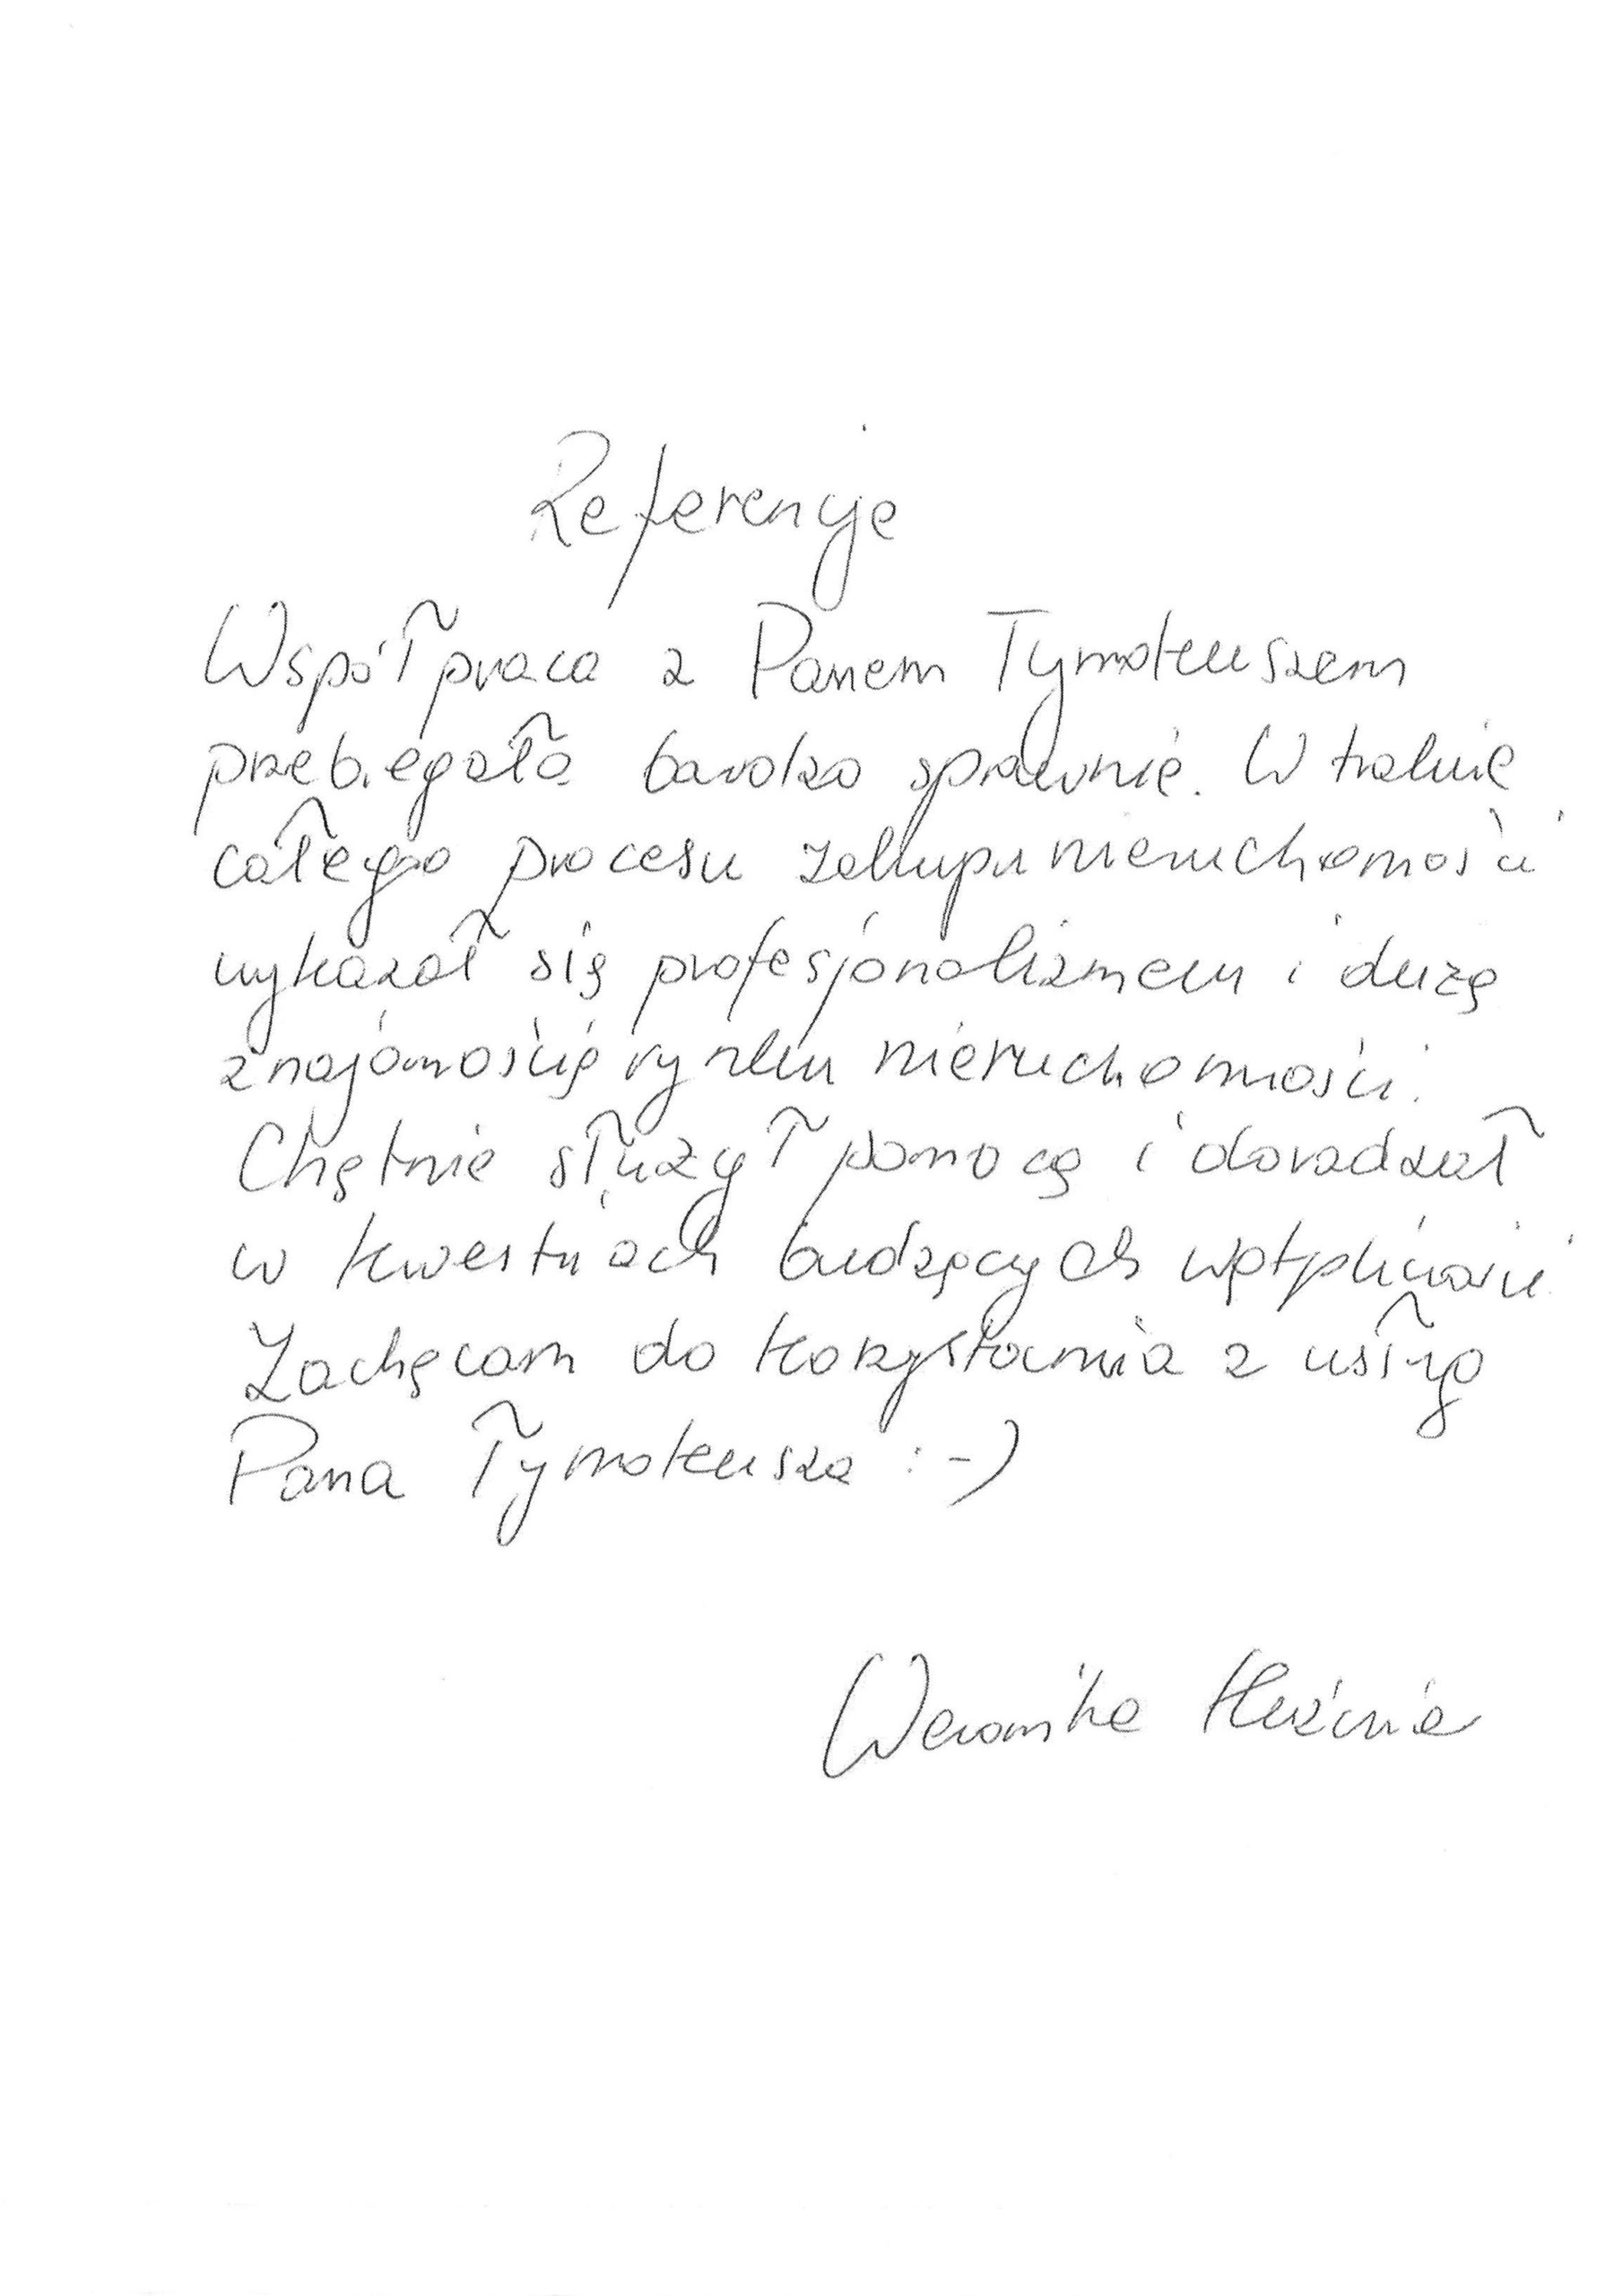 Referencje
Współpraca z Panem Tymoteuszem
przebiegała bardzo sprawnie. W trakcie
całego procesu zakupu nieruchomości
wykazał się profesjonalizmem i dużą
znajomością rynku nieruchomości.
Chętnie służył pomocą i doradzał
w kwestiach budzących wątpliwości.
Zachęcam do korzystania z usług
Pana Tymoteusza :-)
Weronika